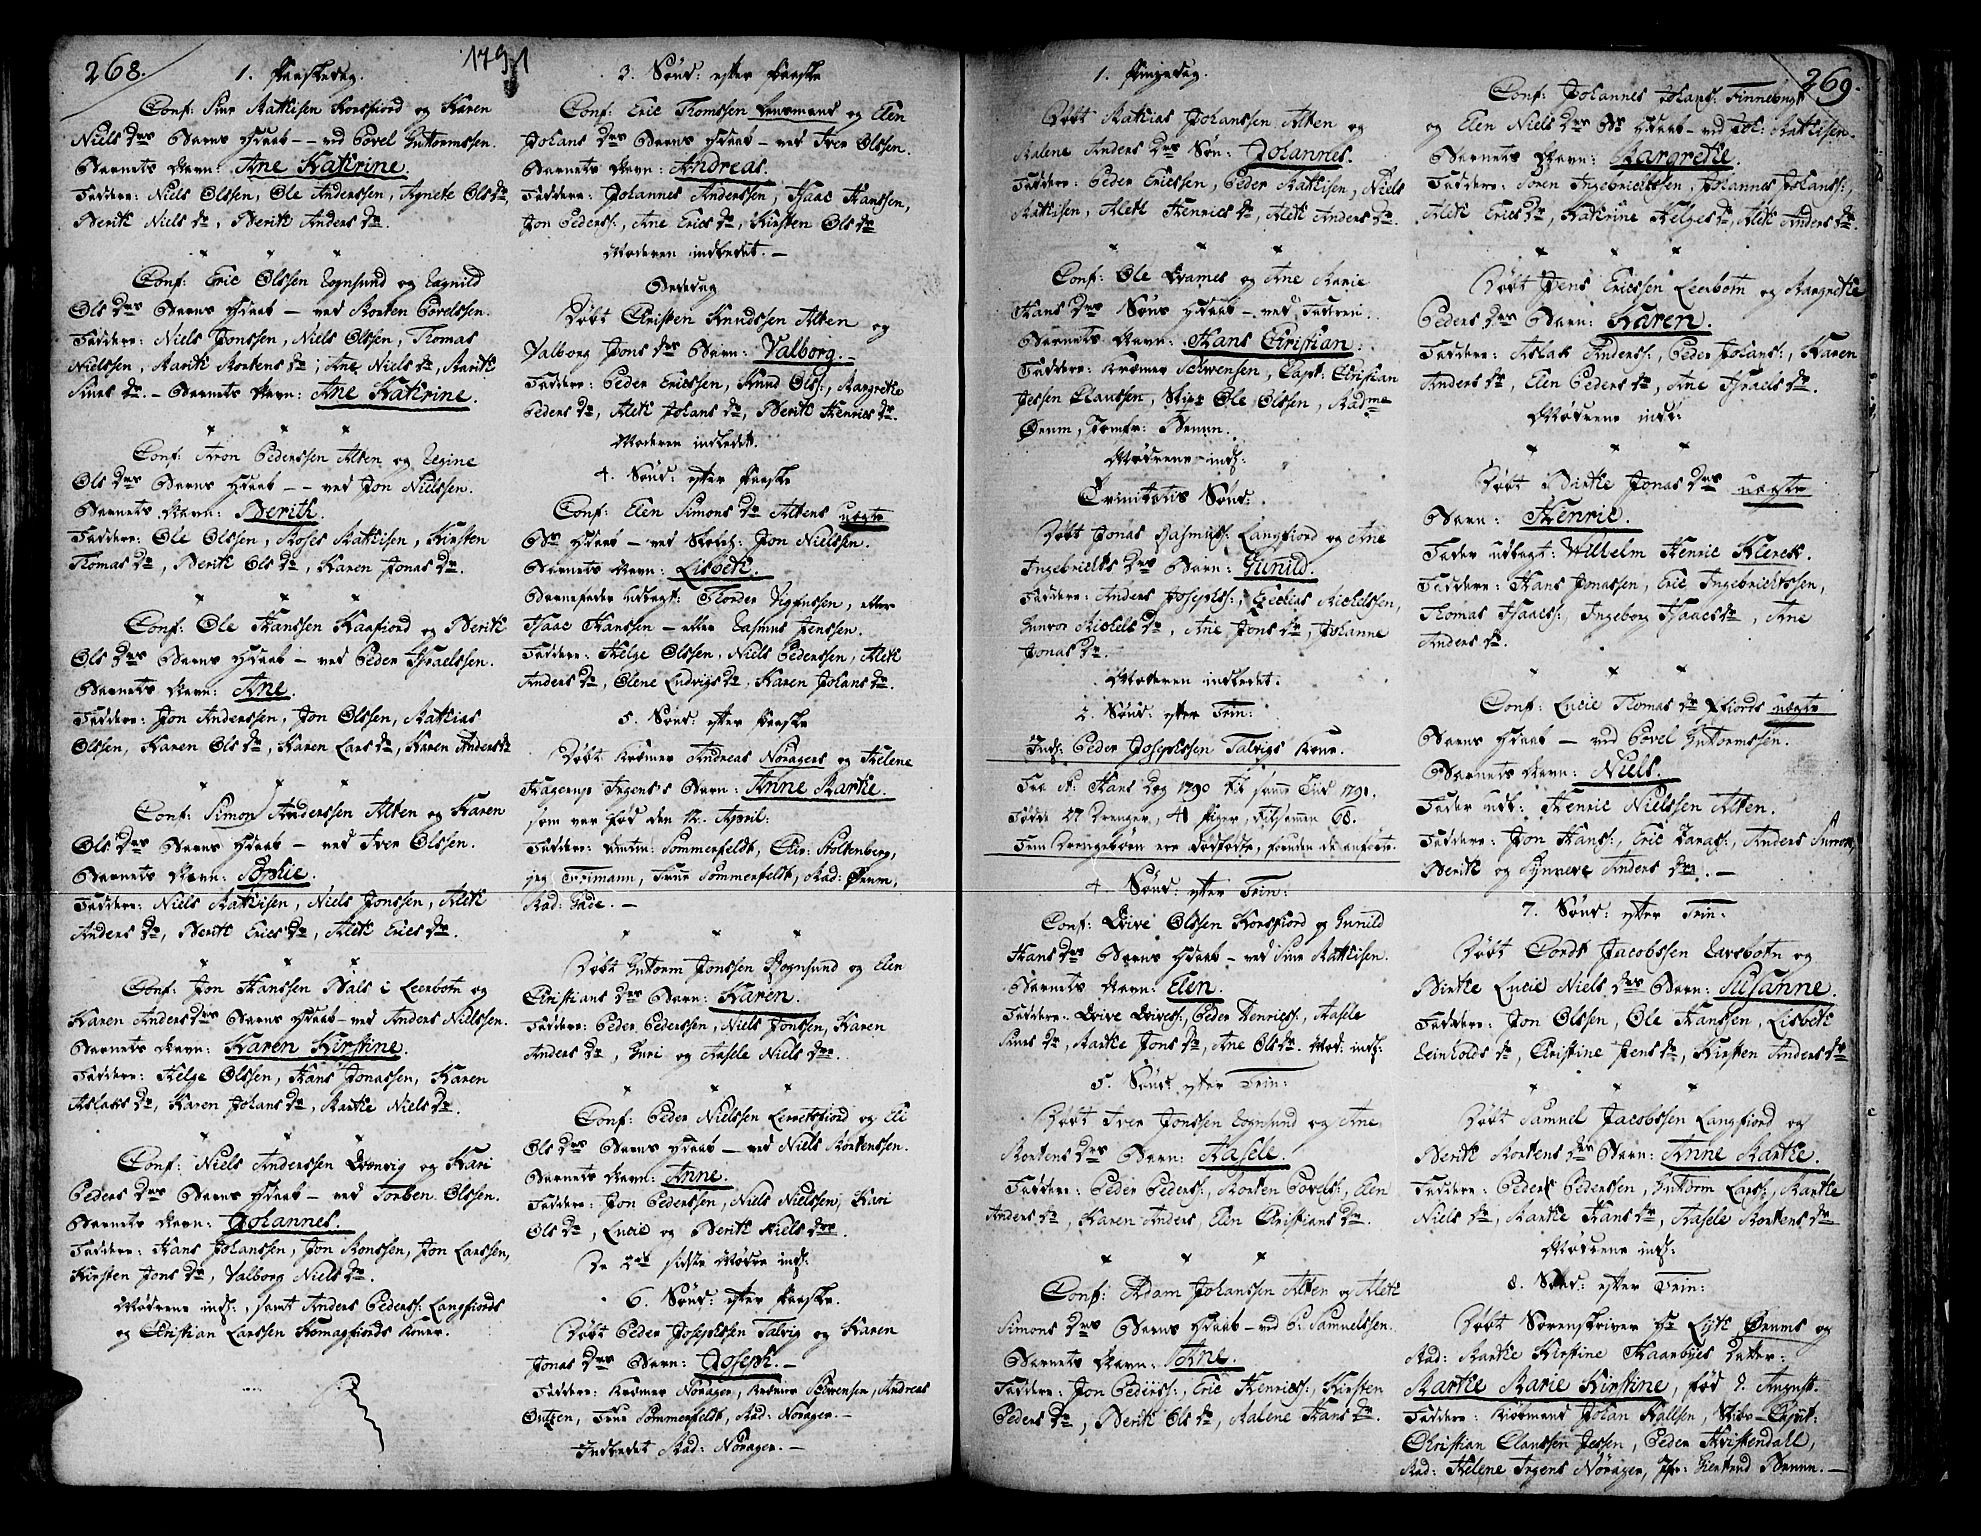 268.
1791
1. Paaskedag.
Conf: Siur Mathisen Korsfiord og Karen
Niels Drs Barns hdaab – ved Povel Guttormssen.
Barnets Navn: Ane Kathrine.
Faddere: Niels Olssen, Ole Anderssen, Agnete Ols Dr,
Berith Niels Dr, Berith Anders Dr.
Conf: Eric Olssen Rognsund og Ragnild
Ols Drs Barns hdaab – ved Morten Povelssen.
Faddere: Niels Jonssen, Niels Olssen, Thomas
Nielssen, Marith Mortens Dr, Ane Niels Dr, Marith
Siurs Dr. – Barnets Navn: Ane Kathrine.
Conf: Aron Pederssen Alten og Regine
Ols Drs Barns hdaab – – ved Jon Nielssen.
Barnets Navn: Berith.
Faddere: Ole Olssen, Moses Mathisen, Kirsten
Thomas Dr, Berith Ols Dr, Karen Jonas Dr.
Conf: Ole Hanssen Kaafiord og Berith
Ols Drs Barns hdaab – ved Peder Israelssen.
Barnets Navn: Ane.
Faddere: Jon Anderssen, Jon Olssen, Mathias
Olssen, Karen Ols Dr, Karen Lars Dr, Karen Anders Dr
Conf: Simon Anderssen Alten og Karen
Ols Drs Barns hdaab – ved Iver Olssen.
Barnets Navn: Sophie.
Faddere: Niels Mathisen, Niels Jonssen, Aleth
Anders Dr, Berith Erics Dr, Aleth Erics Dr.
Conf: Jon Hanssen Næss i Leerbotn og
Karen Anders Drs Barns hdaab – ved Anders Nielssen.
Barnets Navn: Karen Kirstine.
Faddere: Helge Olssen, Hans Jonassen, Karen
Aslaks Dr, Karen Johans Dr, Marthe Niels Dr.
Conf: Niels Anderssen Qvænvig og Kari
Peders Drs Barns hdaab – ved Torben Olssen.
Barnets Navn: Johannes.
Faddere: Hans Johanssen, Jon Monssen, Jon Larssen,
Kirsten Jons Dr, Valborg Niels Dr.
Mødrene indl:, samt Anders Peders: Langfiords
og Christian Larssen Komagfiords Koner.
3. Sønd: efter Paaske
Conf: Eric Thomssen Lensmand og Elen
Johans Drs Barns hdaab – ved Iver Olssen.
Barnets Navn: Andreas.
Faddere: Johannes Anderssen, Isaac Hanssen,
Jon Peders:, Ane Erics Dr, Kirsten Ols Dr
Moderen indledet. –
Bededag
Døbt Christen Knudssen Alten og
Valborg Jons Drs Barn: Valborg. –
Faddere: Peder Ericssen, Knud Ols:, Margrethe
Peders Dr, Aleth Johans Dr, Berith Henrics Dr.
Moderen indledet.
4. Sønd: efter Paaske
Conf: Elen Simons Dr Altens uægte
Bs hdaab – ved Skoeh: Jon Nielssen.
Barnets Navn: Lisbeth.
Barnefader udlagt: Thorder Vigfussen, eller
Isaac Hanssen – eller Rasmus Jenssen.
Faddere: Helge Olssen, Niels Pederssen, Aleth
Anders Dr, Olene Ludvigs Dr, Karen Johans Dr.
5. Sønd: efter Paaske
Døbt Kræmer Andreas Noragers og Helene
Hagerup Irgens's Barn: Anne Marthe.
som var fød den 12. April:
Faddere: Amtm: Sommerfeldt, Chir: Stoltenberg,
jeg Frimann, Frue Sommerfeldt, Mad: Ørum,
Mad: Gade. –
Døbt Guttorm Jonssen Rognsund og Elen
Christians Drs Barn: Karen.
Faddere: Peder Pederssen, Niels Jonssen, Karen
Anders Dr, Guri og Aasele Niels Drs.
Conf: Peder Nielssen Lerretsfiord og Eli
Ols Drs Barns hdaab – ved Niels Mortenssen.
Barnets Navn: Anne.
Faddere: Jon Pederssen, Niels Nielssen, Kari
Ols Dr, Lucie og Berith Niels Drs.
De 2de sidste Mødre indl:
6. Sønd: efter Paaske.
Døbt Peder Josephssen Talvig og Karen
Jonas Drs Barn: Joseph. –
Faddere: Kræmer Norager, Kræmer Schwensen, Andreas
Outzen, Frue Sommerfeldt, Mad: Norager. –
Indledet Mad: Norager. –
269.
1. Pinsedag.
Døbt Mathias Johanssen Alten og
Malene Anders Drs Søn: Johannes.
Faddere: Peder Ericssen, Peder Mathisen, Niels
Mathisen, Aleth Henrics Dr, Aleth Anders Dr
Conf: Ole Qvames og Ane Marie
Hans Drs Søns hdaab – ved Faderen.
Barnets Navn: Hans Christian.
Faddere: Kræmer Schwensen, Capt: Christian
Jessen Claussen, Skipr Ole Olssen, Madme
Ørum, Jomfr: Brun.
Mødrene indl:
Trinitatis Sønd:
Døbt Jonas Rasmus: Langfiord og Ane
Ingebricths Drs Barn: Gunild.
Faddere: Anders Josephs:, Zachias Michelssen,
Gunvor Michels Dr, Ane Jons Dr, Johanne
Jonas Dr.
Moderen indledet.
2. Sønd: efter Trin:
Indl: Peder Josephssen Talvigs Kone.
Fra St: Hans Dag 1790 til samme Tid 1791.
Fødte 27 Drenge, 41 Piger, tilsammen 68.
Fem Drengebørn ere dødfødte, foruden de anførte.
4. Sønd: efter Trin:
Conf: Qvive Olssen Korsfiord og Gunild
Hans Drs Barns hdaab – ved Siur Mathisen.
Barnets Navn: Elen.
Faddere: Qvive Qvives:, Peder Henrics:, Aasele
Siurs Dr, Marthe Jons Dr, Ane Ols Dr. Mod: indl:
5. Sønd: efter Trin:
Døbt Iver Jonssen Rognsund og Ane
Mortens Drs Barn: Aasele.
Faddere: Peder Peders:, Morten Povels:, Elen
Anders Dr, Karen Anders, Elen Christians Dr.
Conf: Adam Johanssen Alten og Aleth
Simons Drs Barns hdaab – ved P: Samuelssen.
Barnets Navn: Ane.
Faddere: Jon Peders:, Eric Henrics:, Kirsten
Peders Dr, Berith Ols Dr, Malene Hans Dr.
Conf: Johannes Johans: Finnebugt
og Elen Niels Drs Bs hdaab – ved Joh: Mathisen.
Barnets Navn: Margrethe.
Faddere: Søren Ingebrichtssen, Johannes Johans:,
Aleth Erics Dr, Kathrine Helges Dr, Aleth Anders Dr.
Døbt Jens Ericssen Leerbotn og Margrethe
Peders Drs Barn: Karen.
Faddere: Aslak Anders:, Peder Johans:, Karen
Anders Dr, Elen Peders Dr, Ane Israels Dr.
Mødrene indl:
Døbt Birthe Jonas Drs uægte
Barn: Henric.
Fader udlagt: Wilhelm Henric Klerck.
Faddere: Hans Jonassen, Eric Ingebrichtssen,
Thomas Isaacs:, Ingeborg Isaacs Dr, Ane
Anders Dr.
Conf: Lucie Thomas Dr fiords uægte
Barns hdaab – ved Povel Guttormssen.
Barnets Navn: Niels.
Fader udl: Henric Nielssen Alten.
Faddere: Jon Hans:, Eric Zaras:, Anders
Berith og Synneve Anders Drs. –
7. Sønd: efter Trin:
Døbt Cordt Jacobssen Leerbotn og
Birthe Lucie Niels Drs Barn: Susanne.
Faddere: Jon Olssen, Ole Hanssen, Lisbeth
Reinholds Dr, Christine Jens Dr, Kirsten Anders Dr
Døbt Samuel Jacobssen Langfiord og
Berith Mortens Drs Barn: Anne Marthe.
Faddere: Peder Pederssen, Guttorm Lars:, Marthe
Niels Dr, Marthe Hans Dr, Aasele Mortens Dr
Mødrene indl:
8. Sønd: efter Trin:
Døbt Sorenskriver Hr Lyth Ørums og
Mad: Marthe Kirstine Haarbyes Datter:
Marthe Marie Kirstine, fød d. August.
Faddere: Kiøbmand Johan Kallsen, Skibs-Capit:
Christian Claussen Jessen, Peder Christendall,
Mad: Helene Irgens Norager, Jfr: Giertrud Brun. –